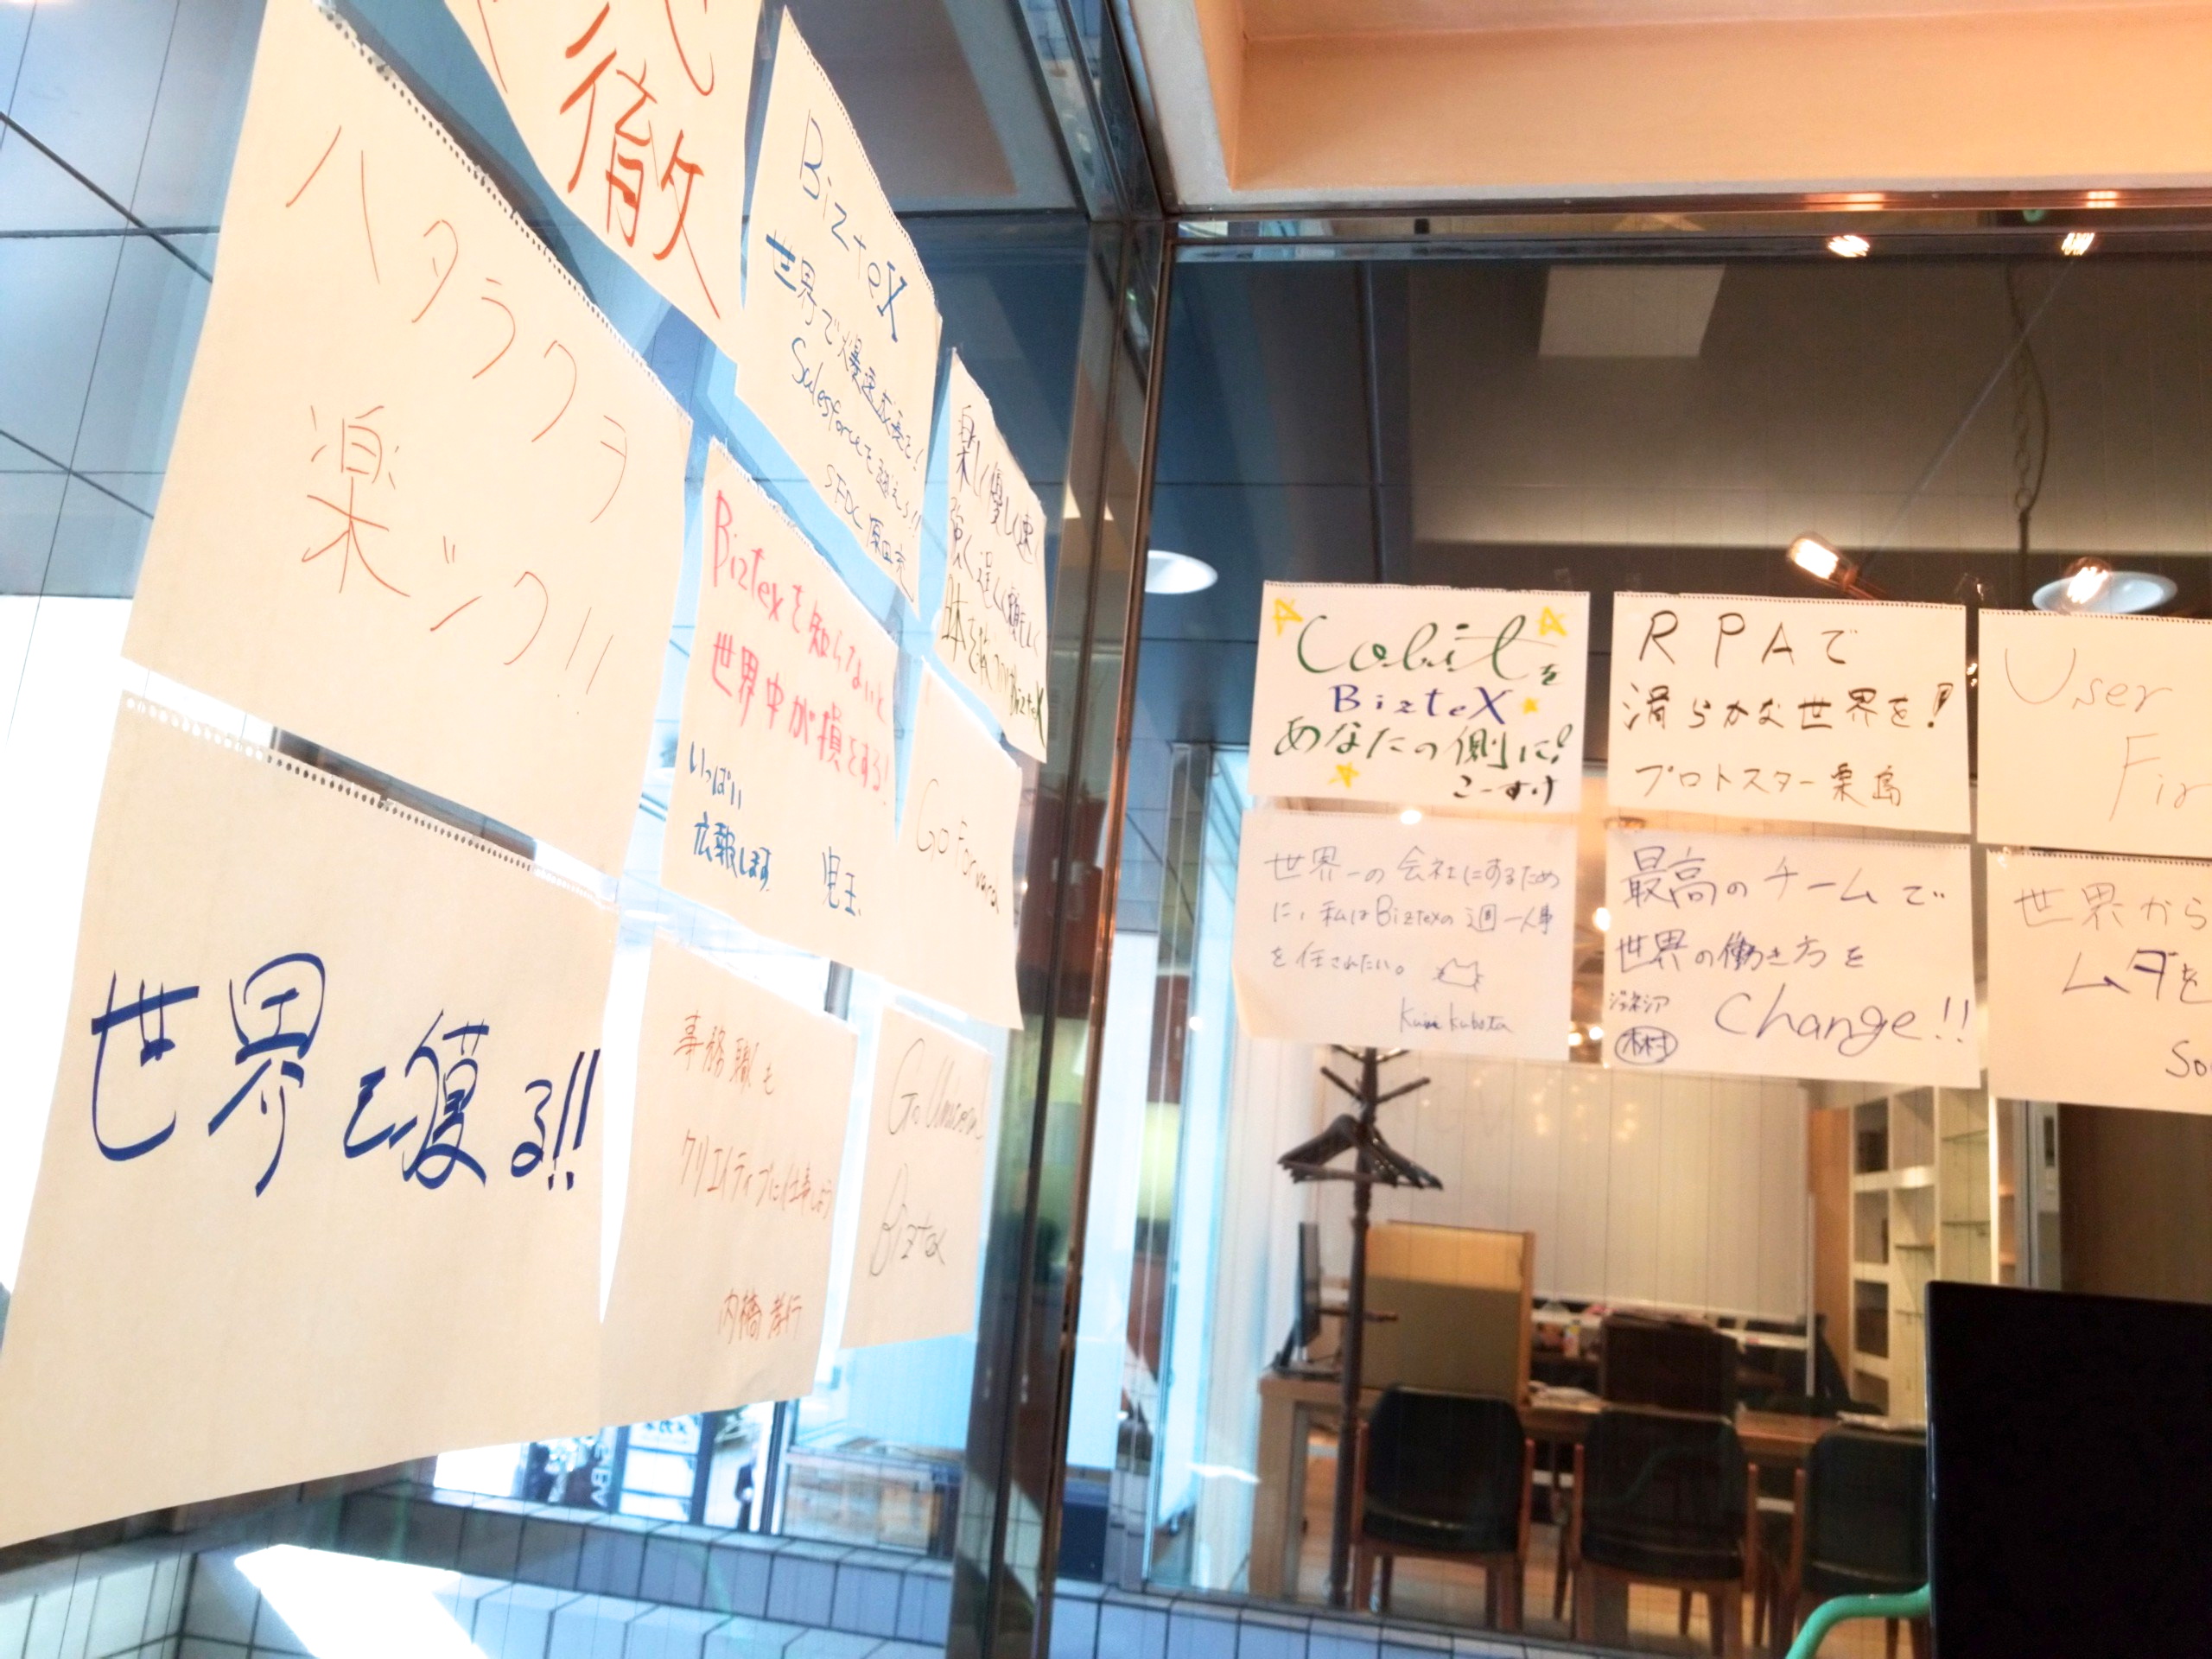 徹
ハタラクヲ
楽シク!!
BizteX
世界で爆速成長を!
Salesforceを越えろ!!
SFDC 原田
楽しく優しく速く
強く逞しく頼もしく
BizteX
Biztexを知らないと
世界中が損をする!
いっぱい
広報します
児玉
Go forward
世界を獲る!!
事務職も
クリエイティブに仕事しよう
内橋 孝行
Go Unicorn,
Biztex
Cobitを
BizteX
あなたの側に!
こーすけ
RPAで
滑らかな世界を!
プロトスター栗島
User
世界一の会社にするため
に、私はBiztexの週一人事
を任されたい。
Kubota
最高のチームで
世界の働き方を
ジェネシア
Change!!
世界から
ムダを